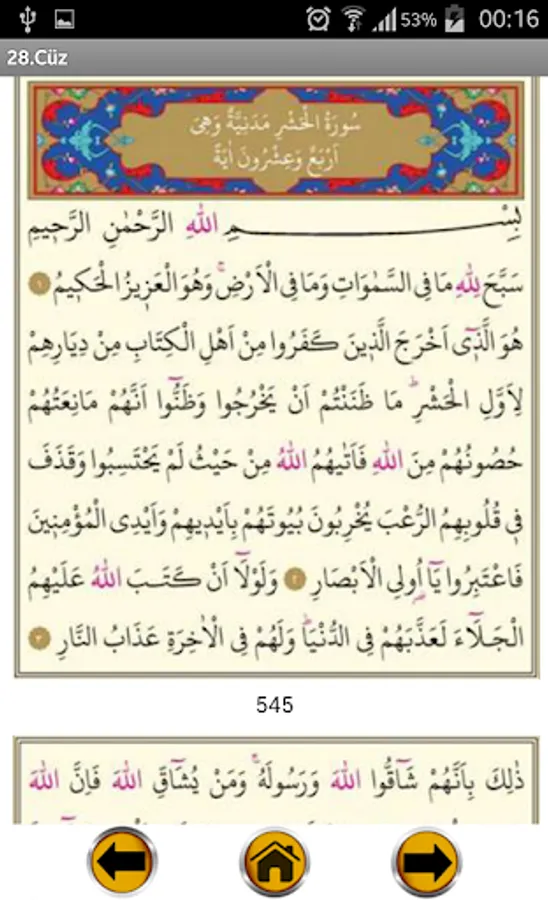 53% 00:16
28.Cüz
سُورَةُ الْحَشْرِ مَدَنِيَّةٌ وَهِىَ
اَرْبَعٌ وَعِشْرُونَ اٰيَةً
بِسْــــــــمِ اللّٰهِ الرَّحْمٰنِ الرَّحِيمِ
سَبَّحَ لِلّٰهِ مَا فِى السَّمٰوَاتِ وَمَا فِى الْاَرْضِۚ وَهُوَ الْعَزِيزُ الْحَكِيمُ ﴿١﴾
هُوَ الَّذ۪ٓى اَخْرَجَ الَّذ۪ينَ كَفَرُوا مِنْ اَهْلِ الْكِتَابِ مِنْ دِيَارِهِمْ
لِاَوَّلِ الْحَشْرِۜ مَا ظَنَنْتُمْ اَنْ يَخْرُجُوا وَظَنُّٓوا اَنَّهُمْ مَانِعَتُهُمْ
حُصُونُهُمْ مِنَ اللّٰهِ فَاَتٰيهُمُ اللّٰهُ مِنْ حَيْثُ لَمْ يَحْتَسِبُوا وَقَذَفَ
ف۪ى قُلُوبِهِمُ الرُّعْبَ يُخْرِبُونَ بُيُوتَهُمْ بِاَيْد۪يهِمْ وَاَيْدِى الْمُؤْمِن۪ينَ
فَاعْتَبِرُوا يَٓا اُو۬لِى الْاَبْصَارِ ﴿٢﴾ وَلَوْلَٓا اَنْ كَتَبَ اللّٰهُ عَلَيْهِمُ
الْجَلَٓاءَ لَعَذَّبَهُمْ فِى الدُّنْيَاۜ وَلَهُمْ فِى الْاٰخِرَةِ عَذَابُ النَّارِ ﴿٣﴾
545
ذٰلِكَ بِاَنَّهُمْ شَٓاقُّوا اللّٰهَ وَرَسُولَهُۚ وَمَنْ يُشَٓاقِّ اللّٰهَ فَاِنَّ اللّٰهَ